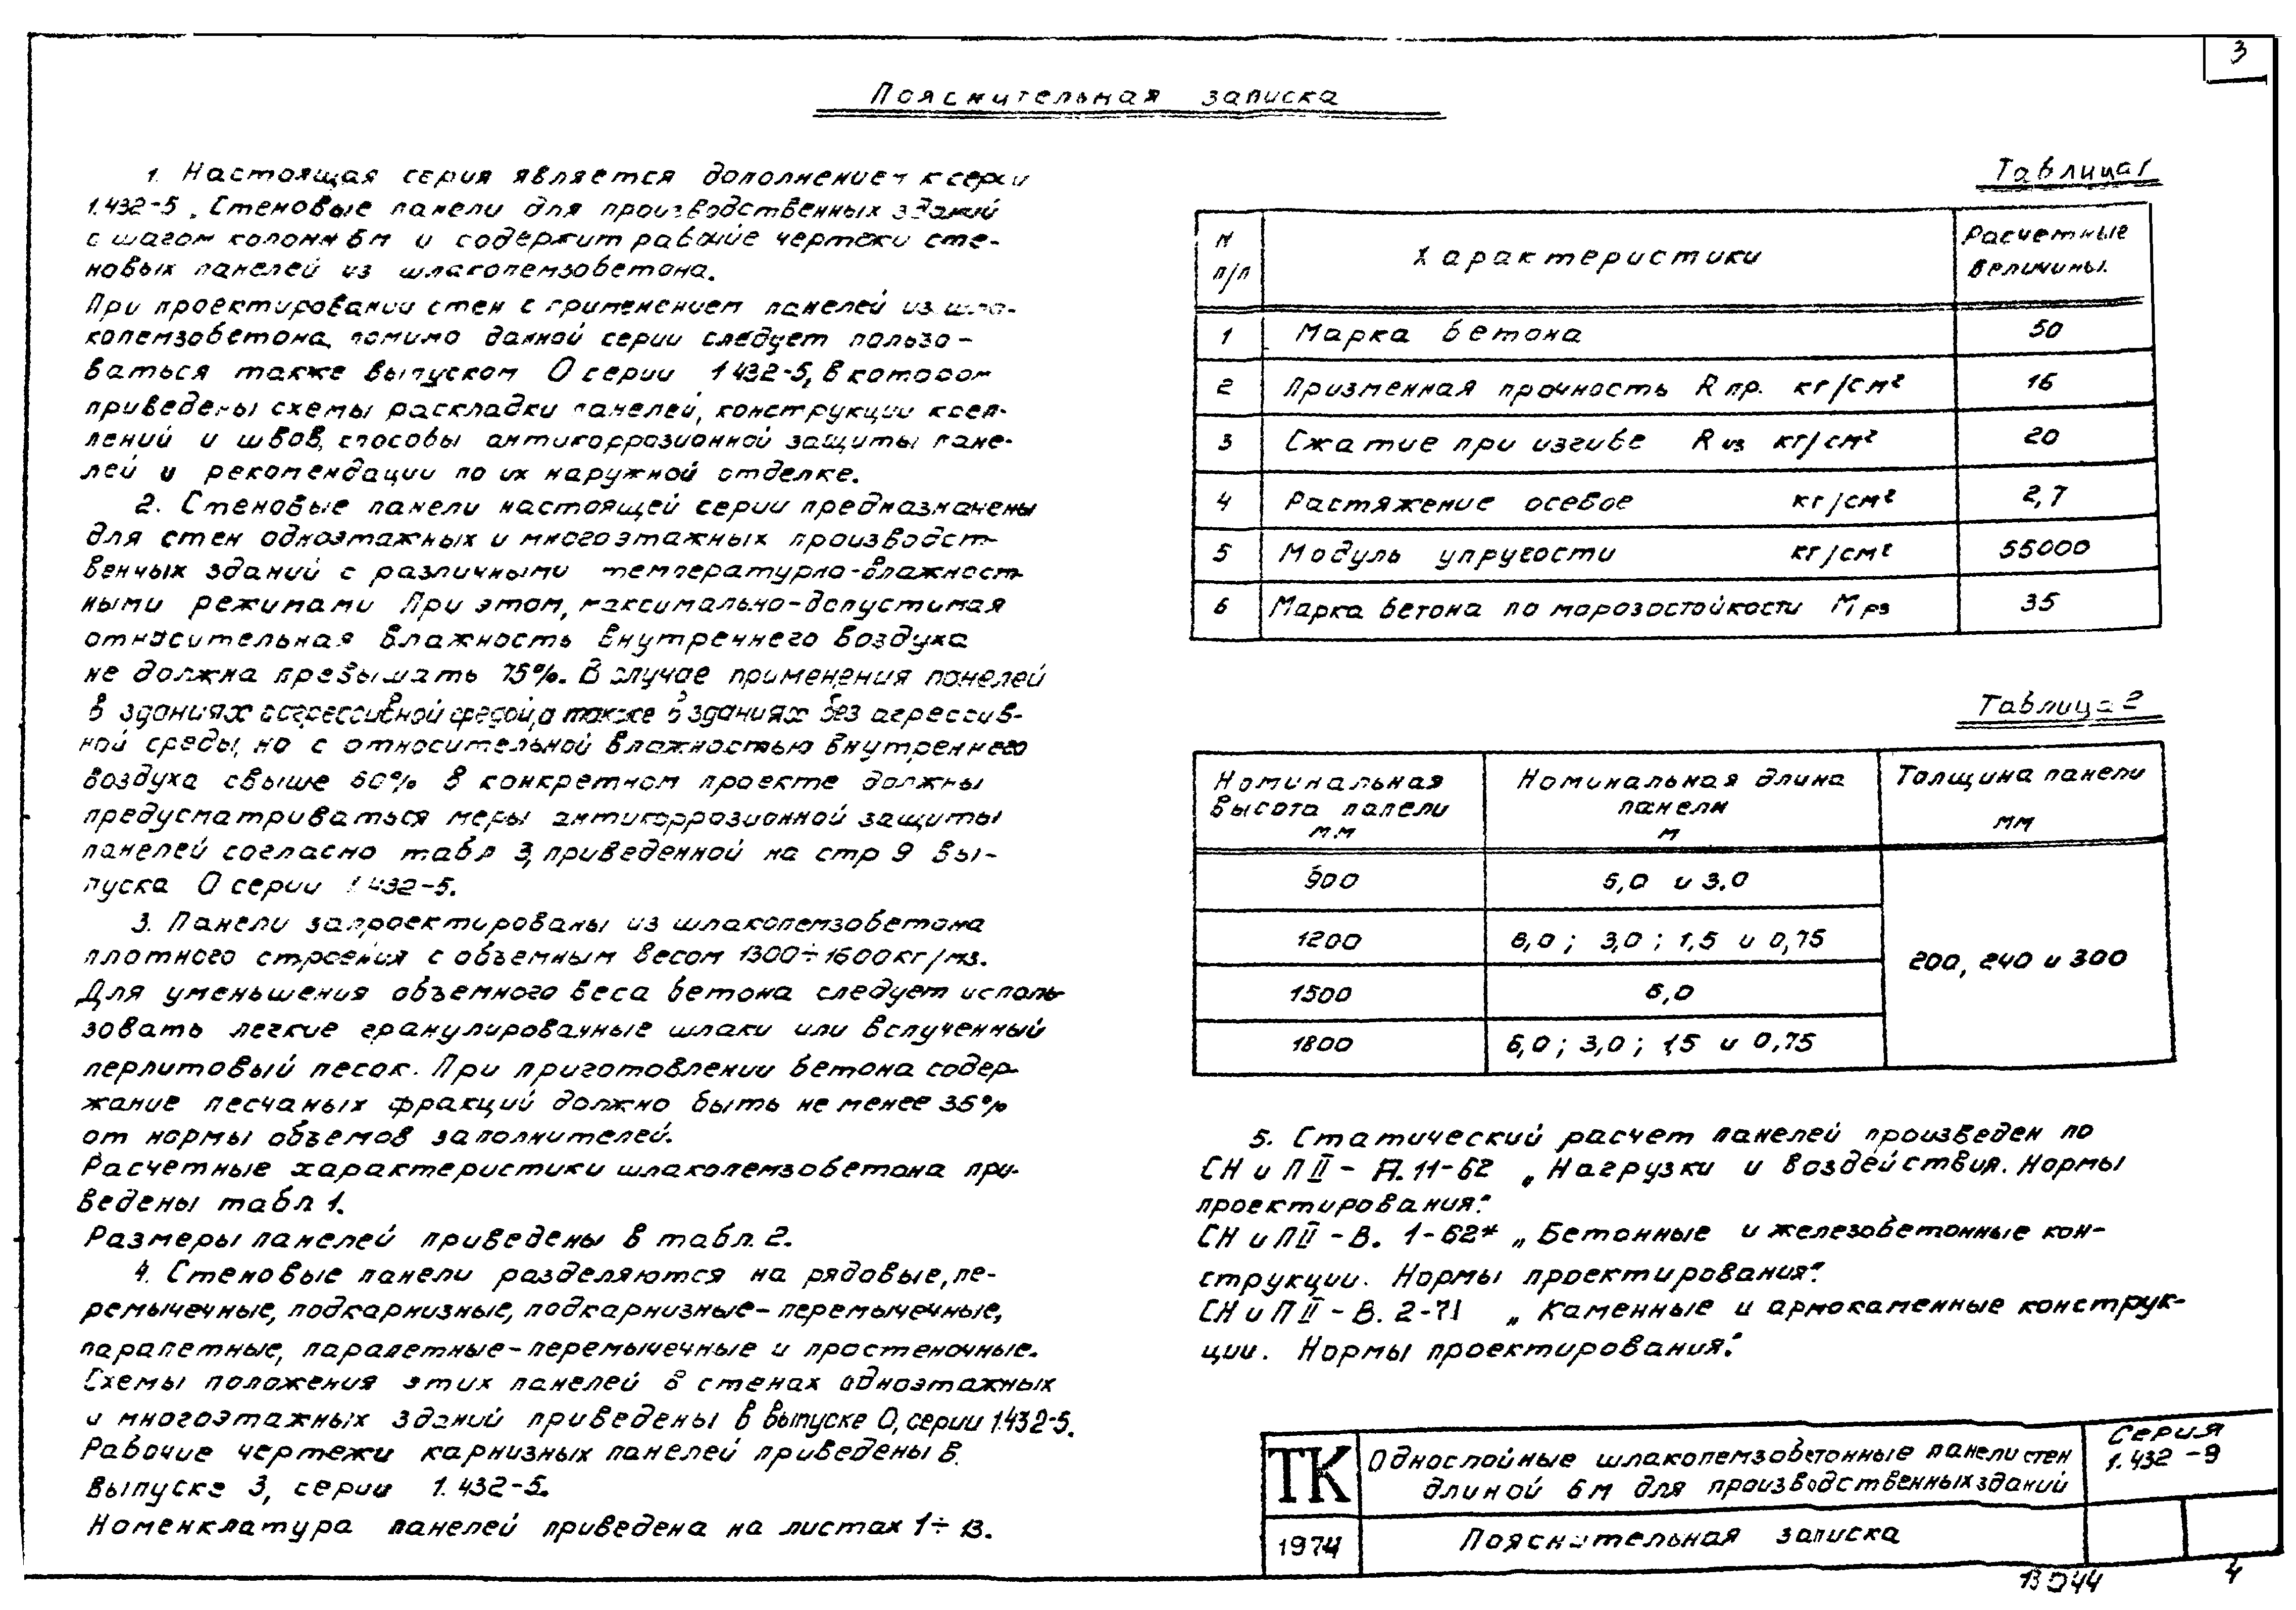 3
Пояснительная записка
1. Настоящая серия является дополнением к серии
1.432-5 „Стеновые панели для производственных зданий
с шагом колонн 6м и содержит рабочие чертежи сте-
новых панелей из шлакопемзобетона.
При проектировании стен с применением панелей из шла-
копемзобетона, помимо данной серии следует пользо-
ваться также выпуском 0 серии 1432-5, в котором
приведены схемы раскладки панелей, конструкции креп-
лений и швов, способы антикоррозионной защиты пане-
лей и рекомендации по их наружной отделке.
2. Стеновые панели настоящей серии предназначены
для стен одноэтажных и многоэтажных производст-
венных зданий с различными температурно-влажност-
ными режимами При этом, максимально-допустимая
относительная влажность внутреннего воздуха
не должна превышать 75%. В случае применения панелей
в зданиях с агрессивной средой, а также в зданиях без агрессив-
ной среды, но с относительной влажностью внутреннего
воздуха свыше 60% в конкретном проекте должны
предусматриваться меры антикоррозионной защиты
панелей согласно табл 3, приведенной на стр 9 вы-
пуска 0 серии 1.432-5.
3. Панели запроектированы из шлакопемзобетона
плотного строения с объемным весом 1300÷1600кг/м3.
Для уменьшения объемного веса бетона следует исполь-
зовать легкие гранулированные шлаки или вспученный
перлитовый песок. При приготовлении бетона содер-
жание песчаных фракций должно быть не менее 35%
от нормы объемов заполнителей.
Расчетные характеристики шлакопемзобетона при-
ведены табл 1.
Размеры панелей приведены в табл. 2.
4. Стеновые панели разделяются на рядовые, пе-
ремычечные, подкарнизные, подкарнизные-перемычечные,
парапетные, парапетные-перемычечные и простеночные.
Схемы положения этих панелей в стенах одноэтажных
и многоэтажных зданий приведены в выпуске 0, серии 1.432-5.
Рабочие чертежи карнизных панелей приведены в
выпуске 3, серии 1.432-5.
Номенклатура панелей приведена на листах 1÷13.
Таблица 1
N п/п Характеристики Расчетные величины.
1 Марка бетона 50
2 Призменная прочность R пр. кг/см² 16
3 Сжатие при изгибе R из кг/см² 20
4 Растяжение осевое кг/см² 2,7
5 Модуль упругости кг/см² 55000
6 Марка бетона по морозостойкости Мрз 35
Таблица 2
Номинальная высота панели мм Номинальная длина панели м Толщина панели мм
900 6,0 и 3.0
1200 6,0; 3,0; 1,5 и 0,75
200, 240 и 300
1500 6,0
1800 6,0; 3,0; 1,5 и 0,75
5. Статический расчет панелей произведен по
СНиП II - А. 11-62 „Нагрузки и воздействия. Нормы
проектирования".
СНиП II - В. 1-62* „Бетонные и железобетонные кон-
струкции. Нормы проектирования".
СНиП II - В. 2-71 „Каменные и армокаменные конструк-
ции. Нормы проектирования".
ТК Однослойные шлакопемзобетонные панели стен
длиной 6м для производственных зданий
Серия
1.432-9
1974 Пояснительная записка
13044 4